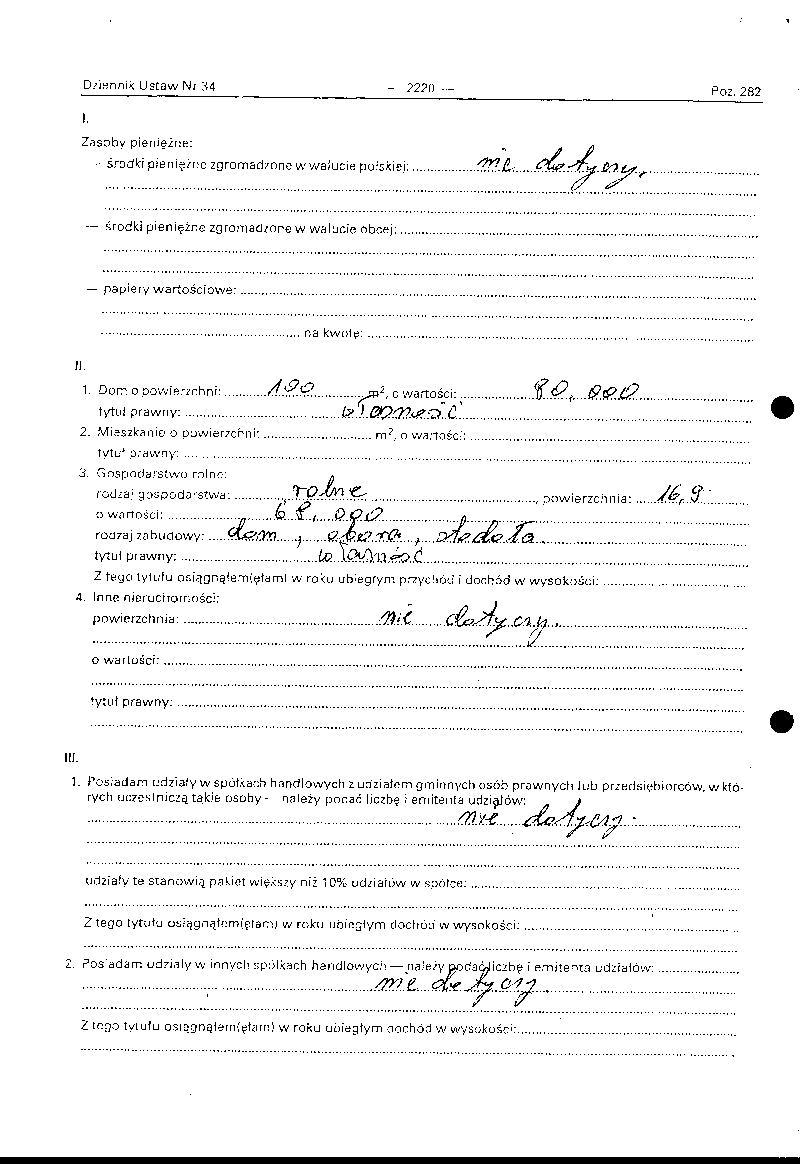 Dziennik Ustaw Nr 34 — 2220 — Poz. 282
I.
Zasoby pieniężne:
— środki pieniężne zgromadzone w walucie polskiej: nie dotyczy.
— środki pieniężne zgromadzone w walucie obcej:
— papiery wartościowe:
na kwotę:
II.
1. Dom o powierzchni: 100 m², o wartości: 80,000
tytuł prawny: własność
2. Mieszkanie o powierzchni: m², o wartości:
tytuł prawny:
3. Gospodarstwo rolne:
rodzaj gospodarstwa: rolne, powierzchnia: 16,9
o wartości: 68,000
rodzaj zabudowy: dom, obora, stodoła.
tytuł prawny: własność
Z tego tytułu osiągnąłem(ęłam) w roku ubiegłym przychód i dochód w wysokości:
4. Inne nieruchomości:
powierzchnia: nie dotyczy.
o wartości:
tytuł prawny:
III.
1. Posiadam udziały w spółkach handlowych z udziałem gminnych osób prawnych lub przedsiębiorców, w któ-
rych uczestniczą takie osoby — należy podać liczbę i emitenta udziałów:
nie dotyczy.
udziały te stanowią pakiet większy niż 10% udziałów w spółce:
Z tego tytułu osiągnąłem(ęłam) w roku ubiegłym dochód w wysokości:
2. Posiadam udziały w innych spółkach handlowych — należy podać liczbę i emitenta udziałów:
nie dotyczy.
Z tego tytułu osiągnąłem(ęłam) w roku ubiegłym dochód w wysokości: